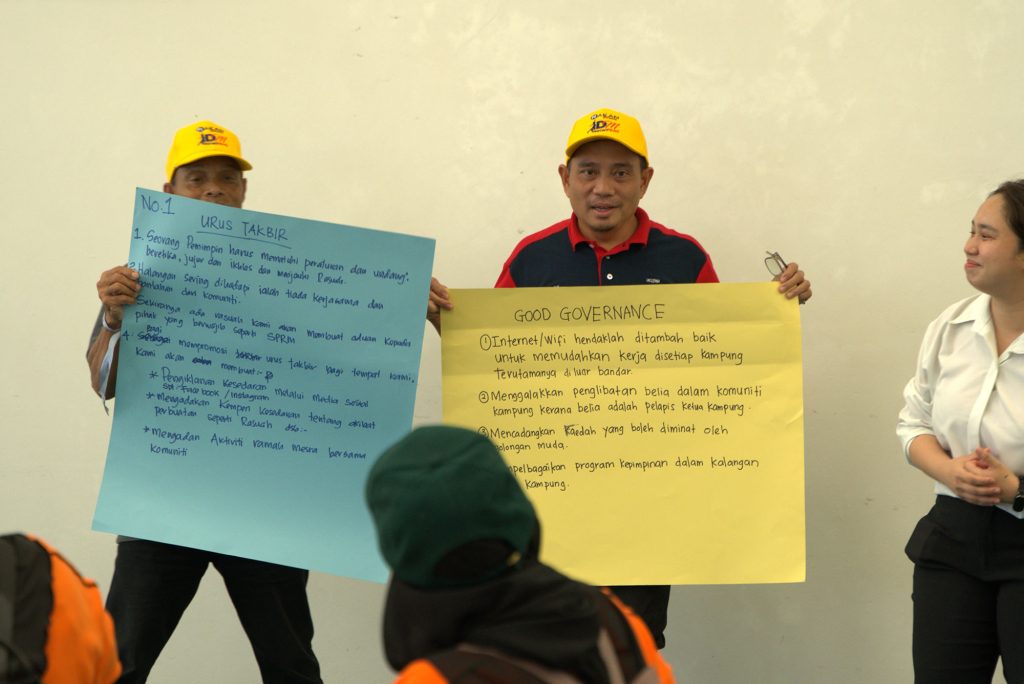 iDM
iDM
No.1
URUS TAKBIR
1. Seorang Pemimpin harus mematuhi peraturan dan undang².
beretika, jujur dan ikhlas dan menjauhi Rasuah.
Halangan sering dihadapi ialah tiada kerjasama dan
bantahan dari komuniti.
Sekiranya ada rasuah kami akan membuat aduan kepada
pihak yang berwajib seperti SPRM
4. Bagi mempromosi urus takbir bagi tempat kami.
Kami akan membuat :-
* Pengiklanan Kesedaran melalui media sosial
spt. Facebook / Instagram
* Mengadakan Kempen Kesedaran tentang akibat
perbuatan seperti Rasuah dsb.-
* Mengadan Aktiviti ramah mesra bersama
komuniti
GOOD GOVERNANCE
① Internet/Wifi hendaklah ditambah baik
untuk memudahkan kerja disetiap kampung
terutamanya diluar bandar.
② Menggalakkan penglibatan belia dalam komuniti
kampung kerana belia adalah pelapis ketua kampung.
③ Mencadangkan kaedah yang boleh diminat oleh
golongan muda.
mpelbagaikan program kepimpinan dalam kalangan
kampung.